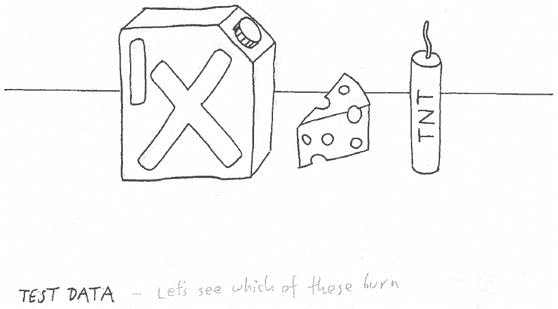 TNT
TEST DATA – Let's see which of these burn